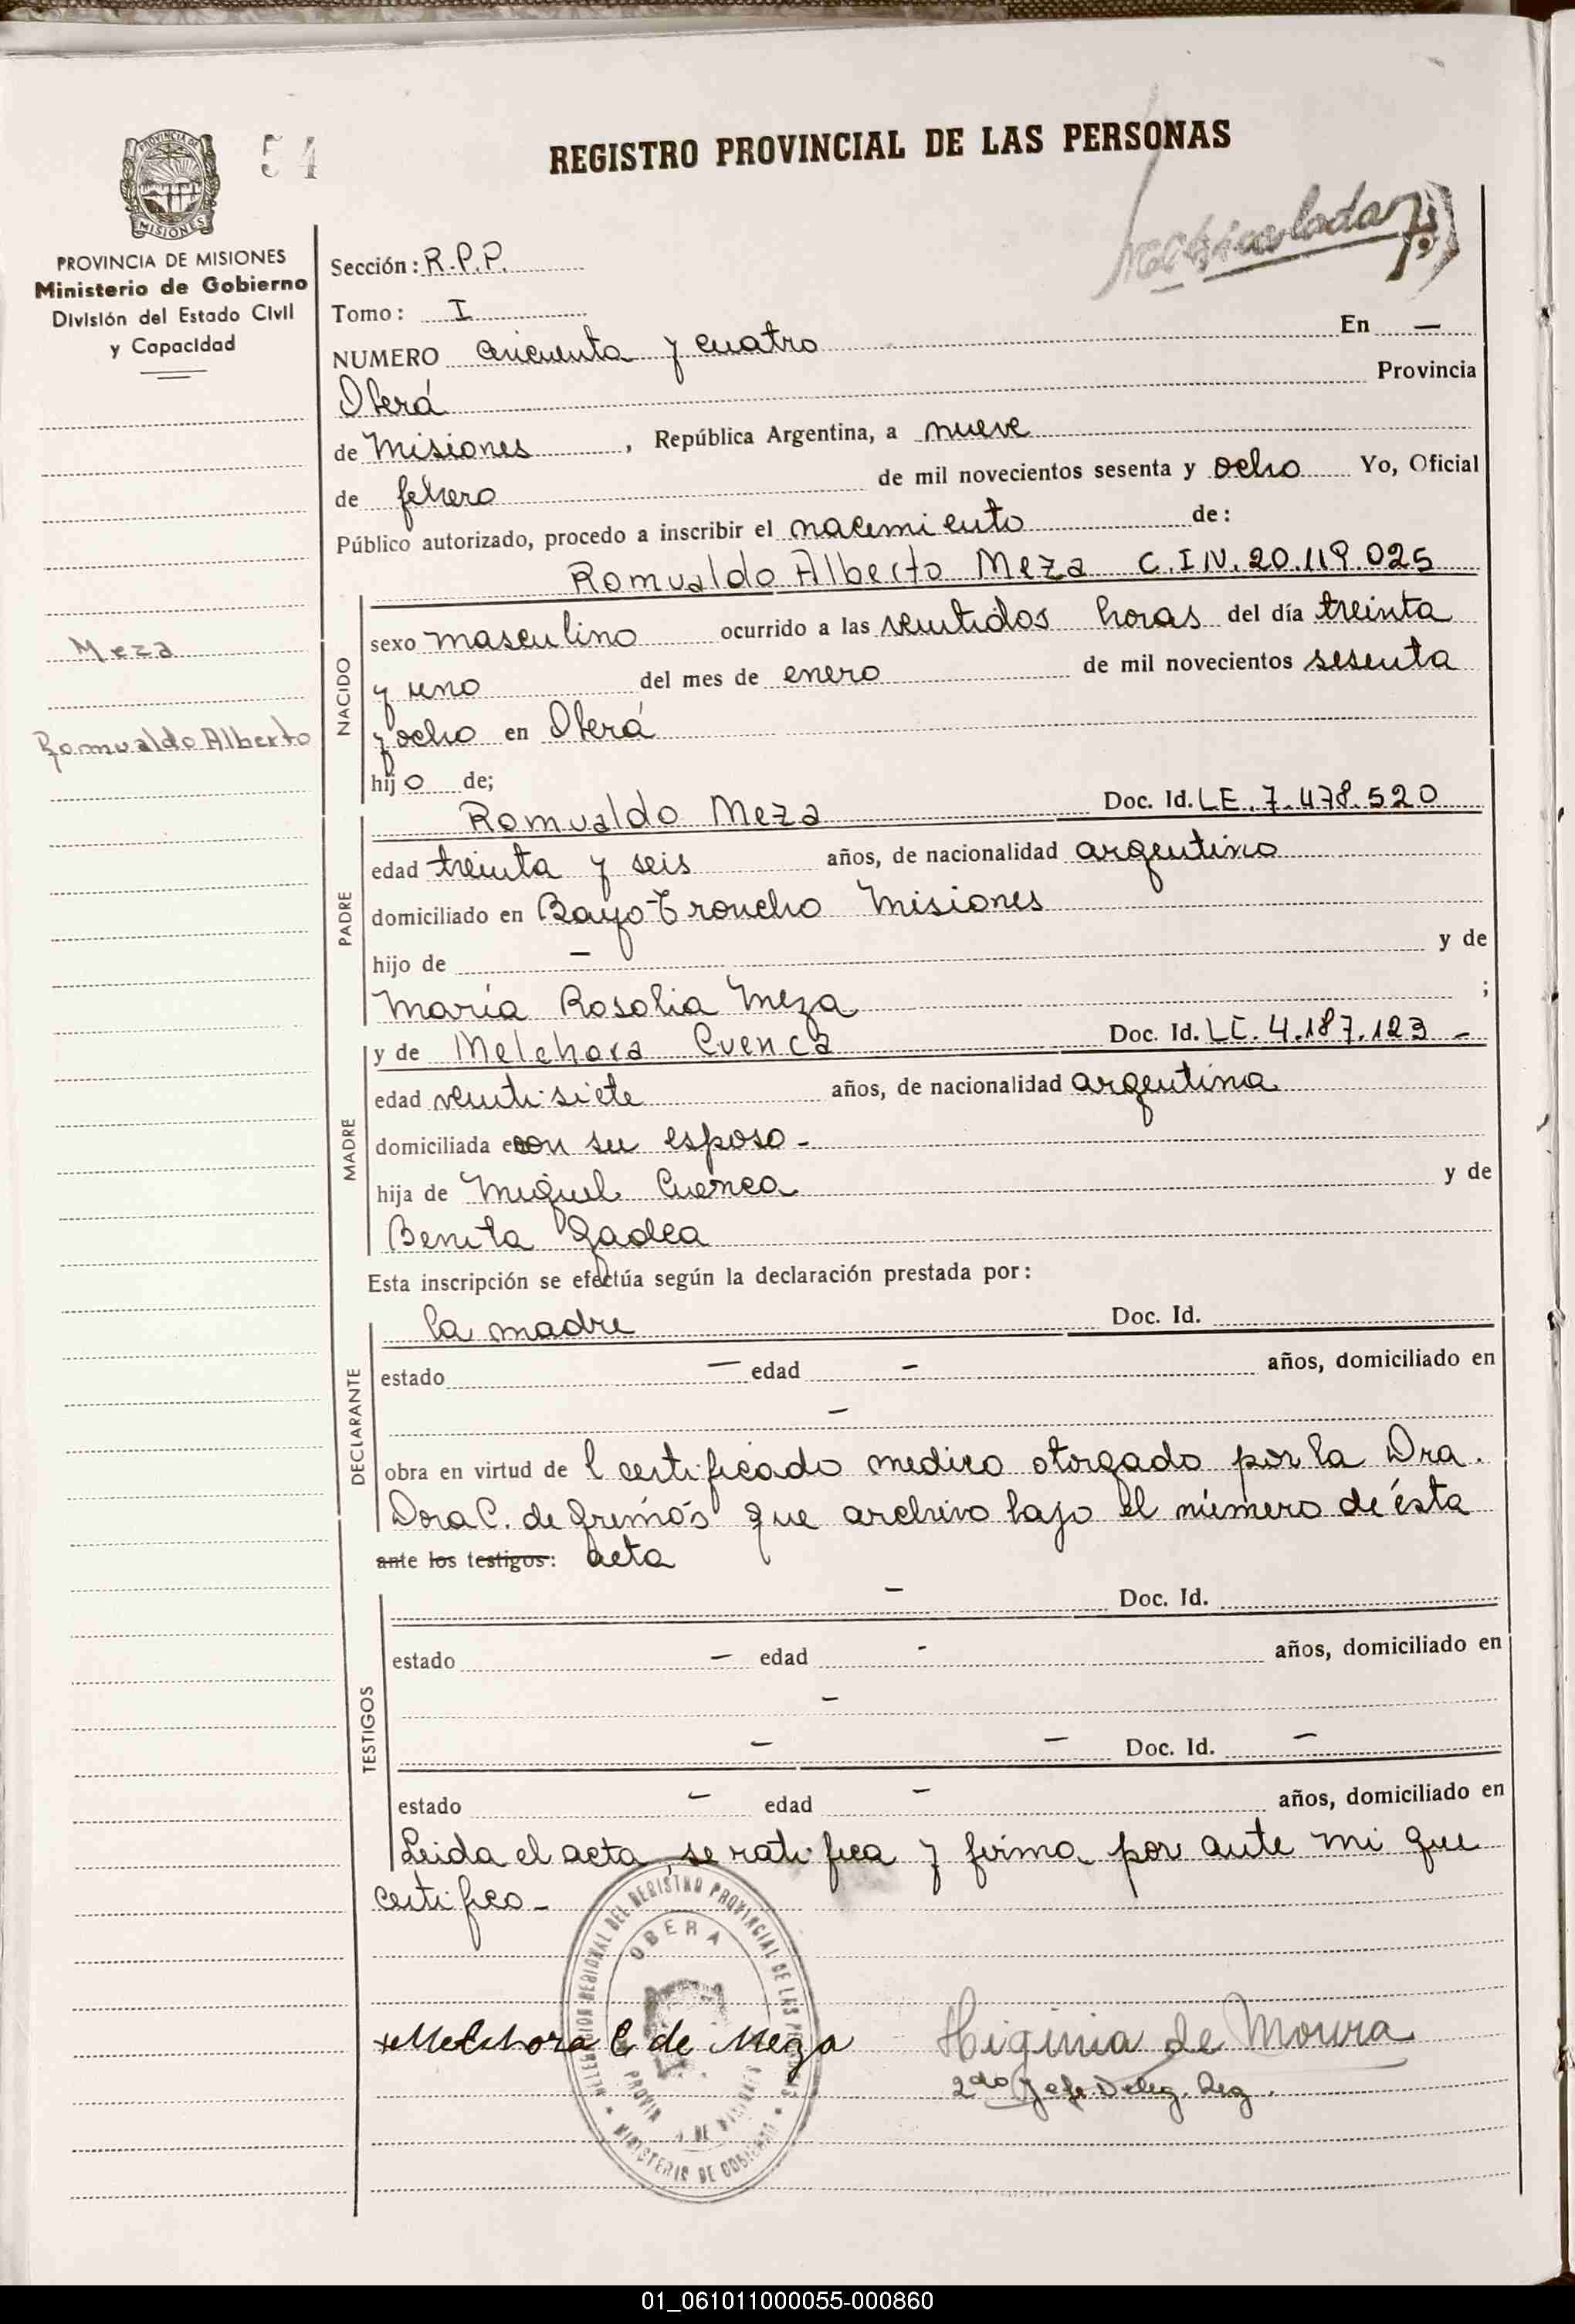 54
REGISTRO PROVINCIAL DE LAS PERSONAS
PROVINCIA DE
MISIONES
PROVINCIA DE MISIONES
Ministerio de Gobierno
División del Estado Civil
y Capacidad
Meza
Romualdo Alberto
Sección: R.P.P.
Tomo: I
NUMERO cincuenta y cuatro En —
Oberá Provincia
de Misiones, República Argentina, a nueve
de febrero de mil novecientos sesenta y ocho Yo, Oficial
Público autorizado, procedo a inscribir el nacimiento de:
Romualdo Alberto Meza C.I N. 20.119.025
NACIDO
sexo masculino ocurrido a las veintidos horas del día treinta
y uno del mes de enero de mil novecientos sesenta
y ocho en Oberá
hijo de;
PADRE
Romualdo Meza Doc. Id. LE. 7.478.520
edad treinta y seis años, de nacionalidad argentino
domiciliado en Bayo-Troncho Misiones
hijo de — y de
María Rosolia Meza ;
MADRE
y de Melchora Cuenca Doc. Id. LC. 4.187.123 -
edad veinti-siete años, de nacionalidad argentina
domiciliada con su esposo -
hija de Miguel Cuenca y de
Benita Gadea
Esta inscripción se efectúa según la declaración prestada por:
DECLARANTE
la madre Doc. Id.
estado — edad — años, domiciliado en
—
obra en virtud del certificado medico otorgado por la Dra.
Dora C. de que archivo bajo el número de ésta
ante los testigos: acta
TESTIGOS
— Doc. Id.
estado — edad - años, domiciliado en
—
— — Doc. Id. —
estado — edad — años, domiciliado en
Leida el acta, se ratifica y firma por ante mi que
certifico -
DELEGACION REGIONAL DEL REGISTRO PROVINCIAL DE LAS PERSONAS
OBERA
MINISTERIO DE GOBIERNO
Melchora C de Meza
Higinia de Moura
2do Jefe Deleg. Reg.
01_061011000055-000860